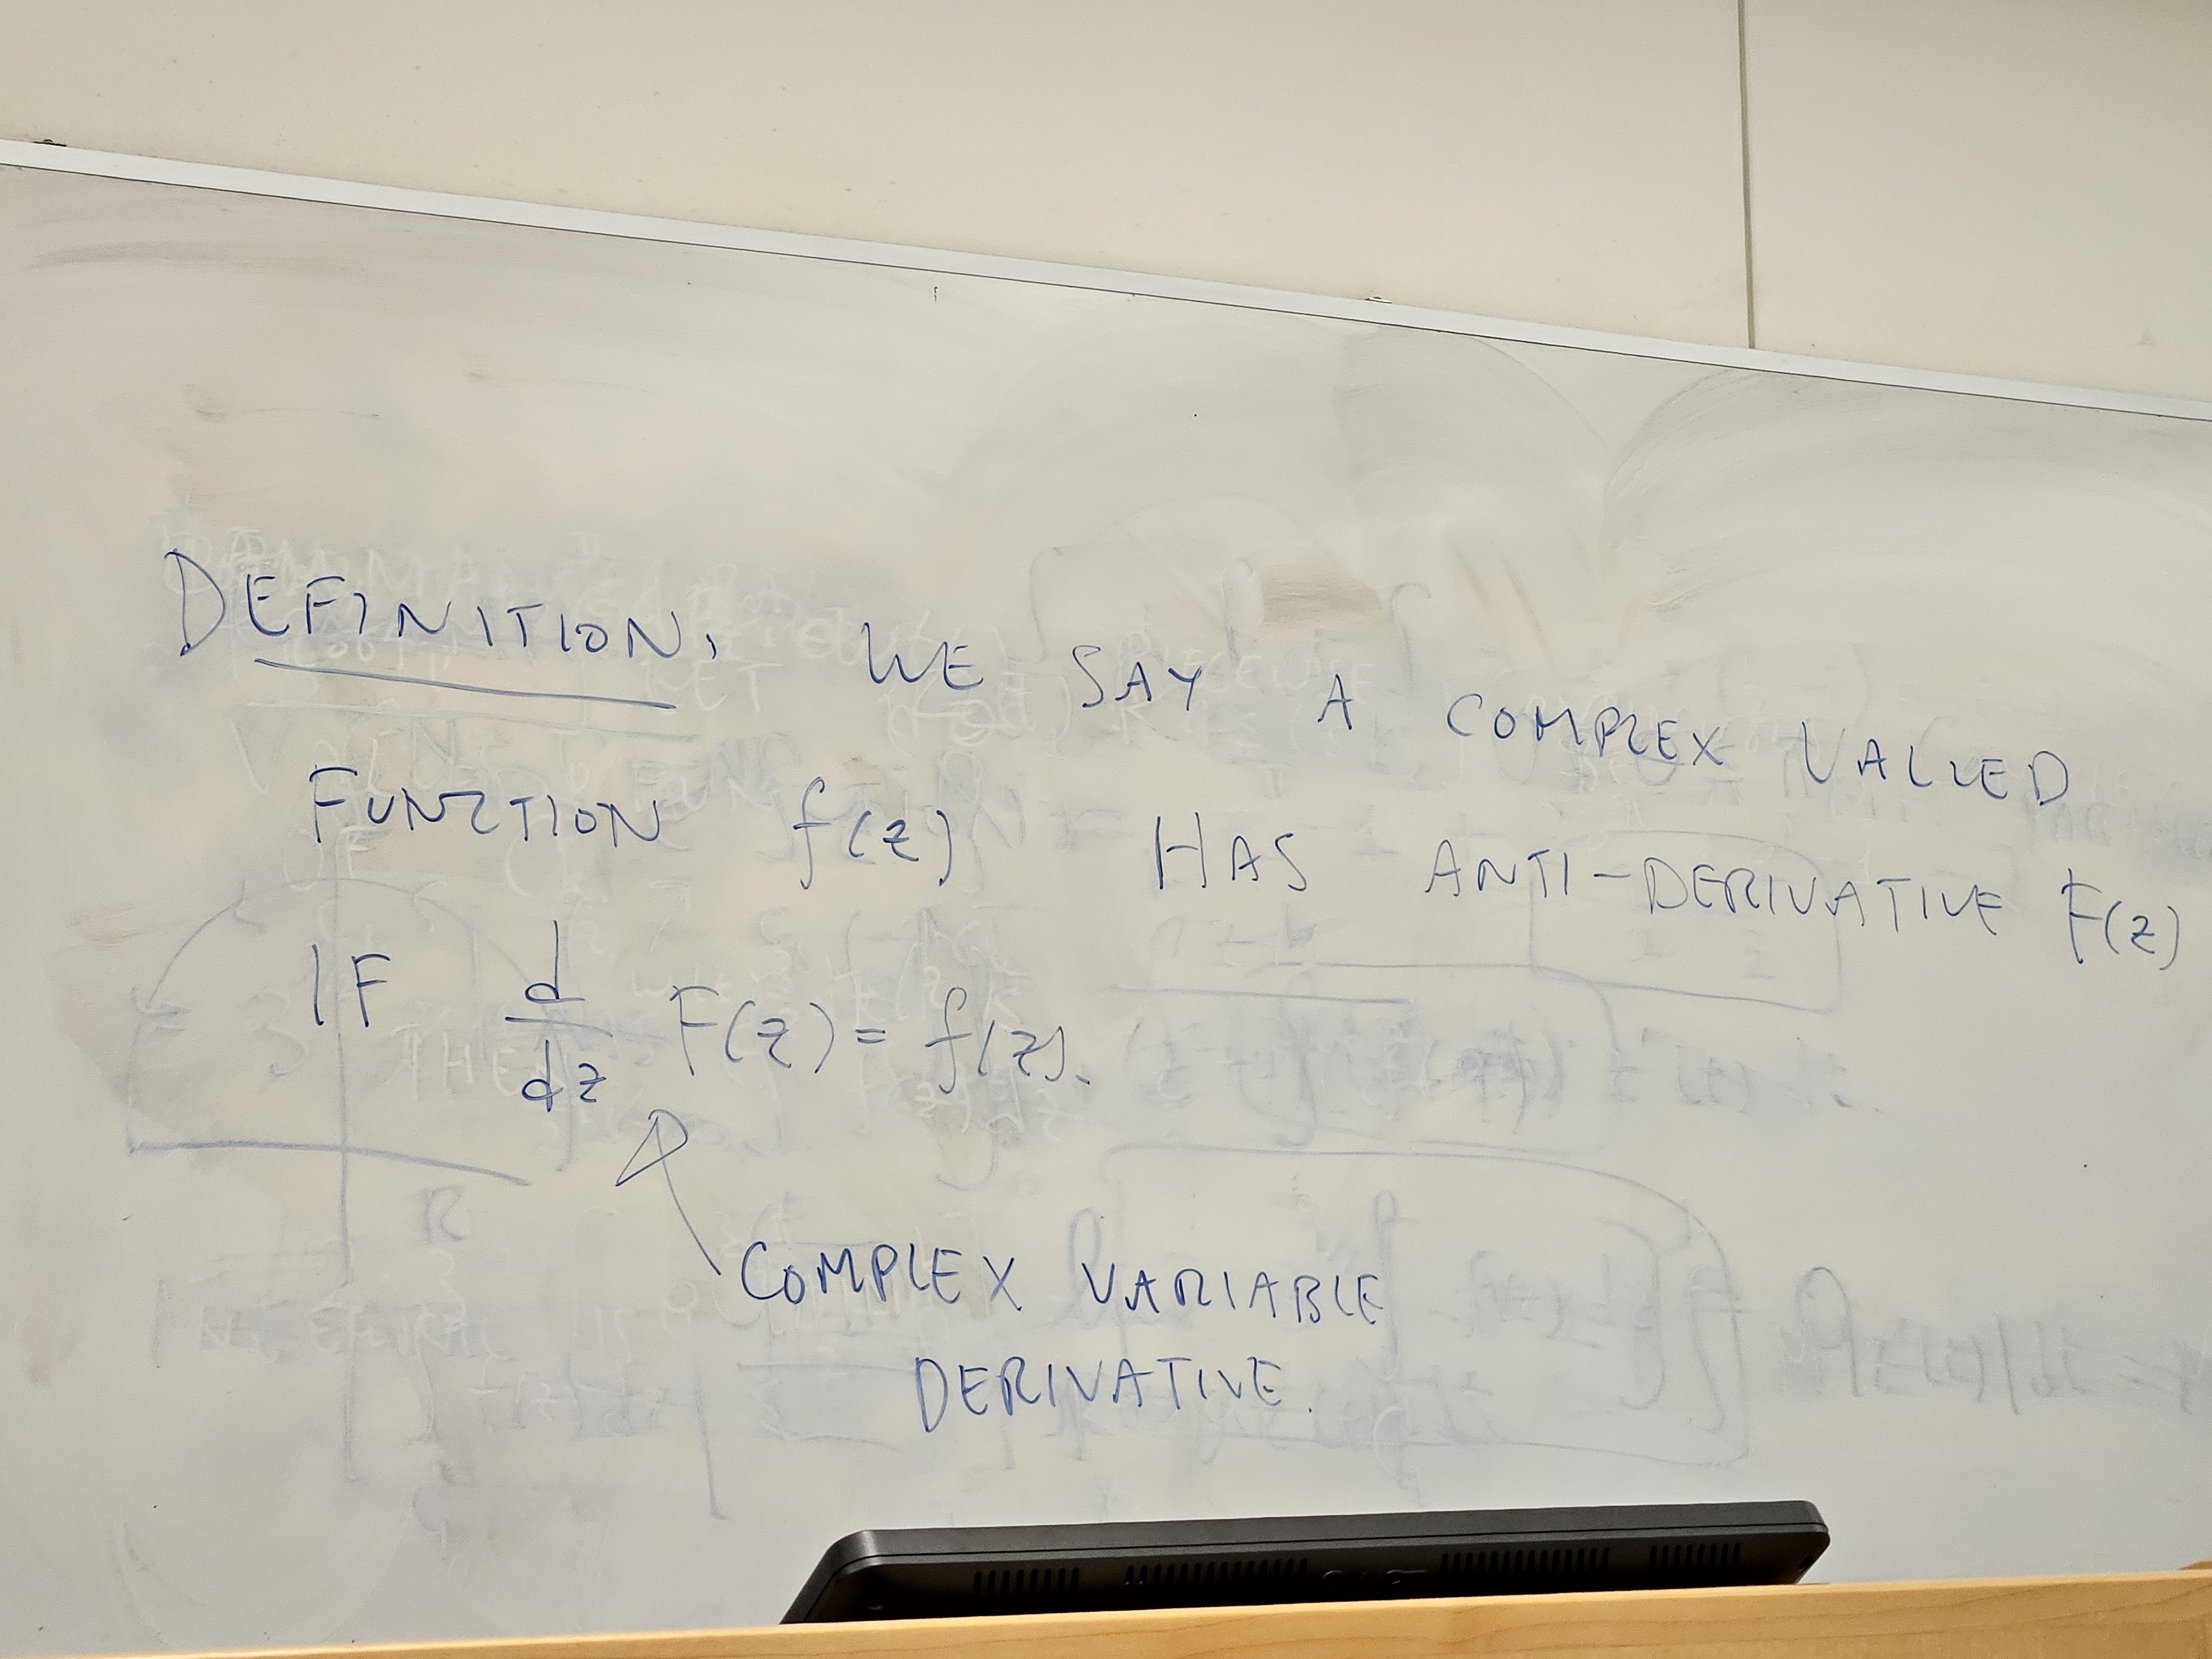 DEFINITION. WE SAY A COMPLEX VALUED
FUNCTION f(z) HAS ANTI-DERIVATIVE F(z)
IF d/dz F(z) = f(z).
COMPLEX VARIABLE
DERIVATIVE.